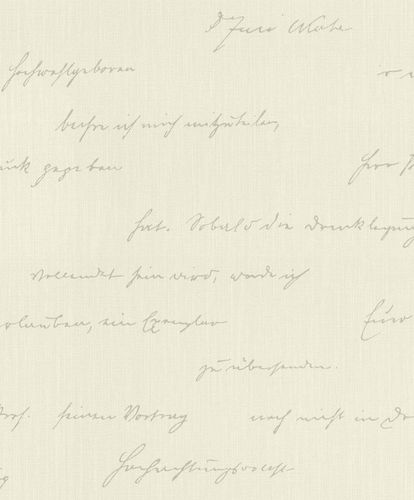 Hochwohlgeboren
beehre ich mich mitzuteilen,
gegeben
hat. Sobald die Drucklegung
vollendet sein wird, werde ich
erlauben, ein Exemplar Euer
zu übersenden.
seinen Vortrag noch nicht in
Hochachtungsvollst